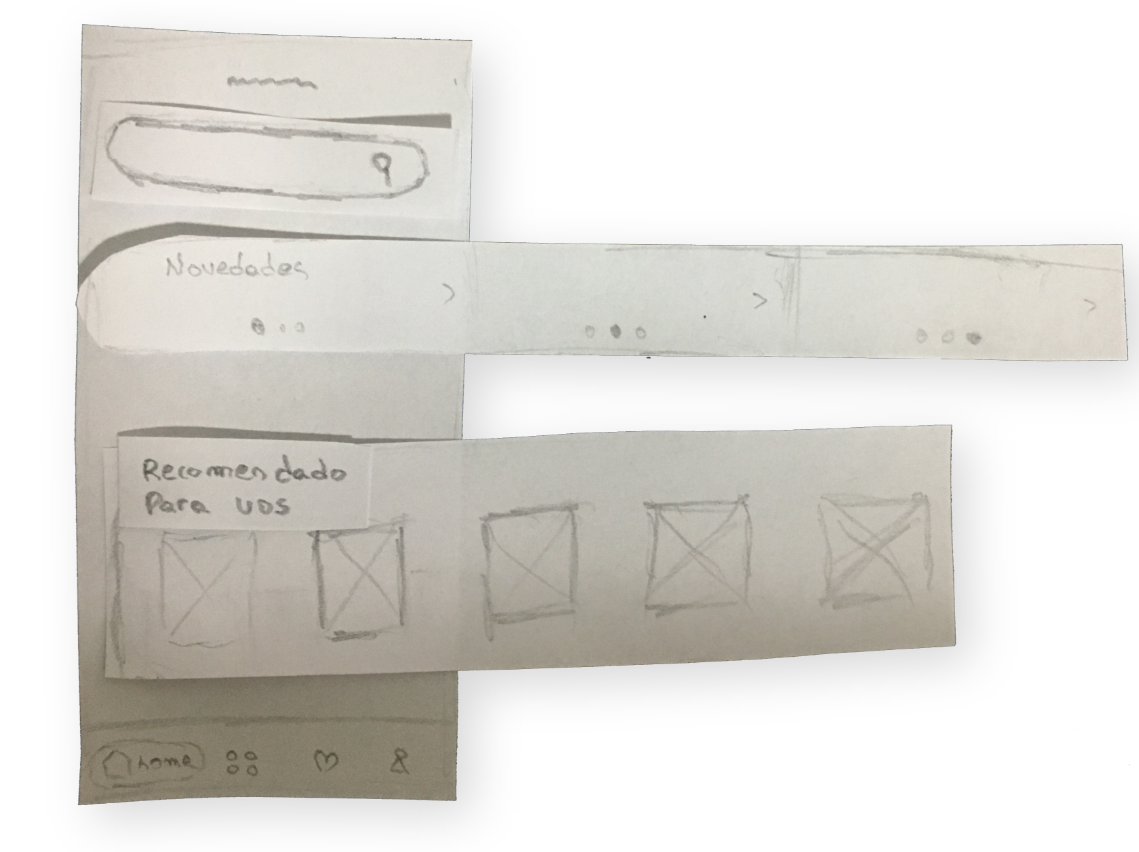 Novedades
Recomendado
Para UDS
home